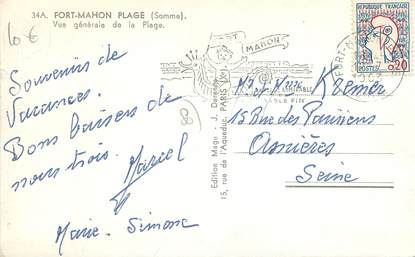 10 €
34A. FORT-MAHON PLAGE (Somme).
Vue générale de la Plage.
Souvenirs de
Vacances.
Bons baisers de
nous trois. Marcel
Marie-Simone
Edition Mage - J.
15, rue de l'Aqueduc, PARIS
FORT
MAHON
SABLE FIN
REPUBLIQUE FRANCAISE
POSTES 0,20
Mr et Mme Kremer
15 Rue des Parisiens
Asnières
Seine